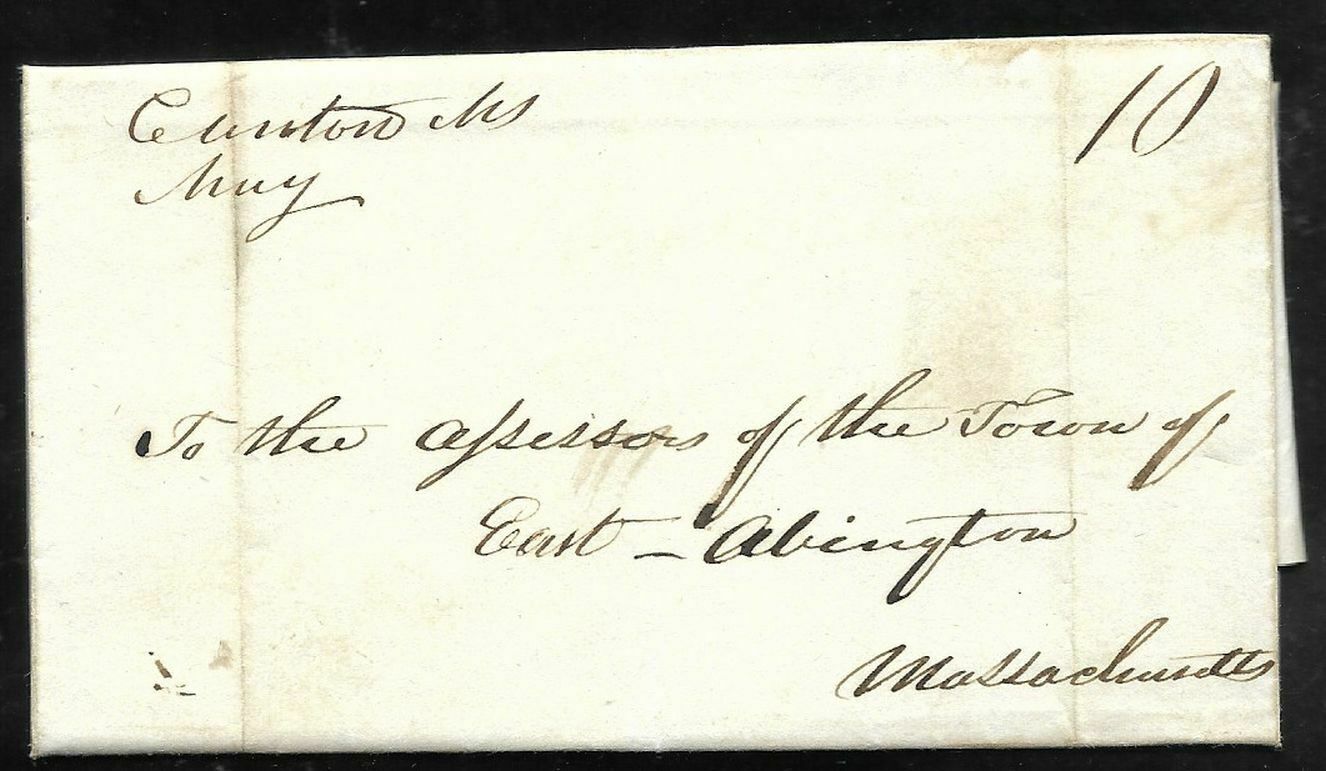 Canton Ms
May
10
To the assessors of the Town of
East - Abington
Massachusetts